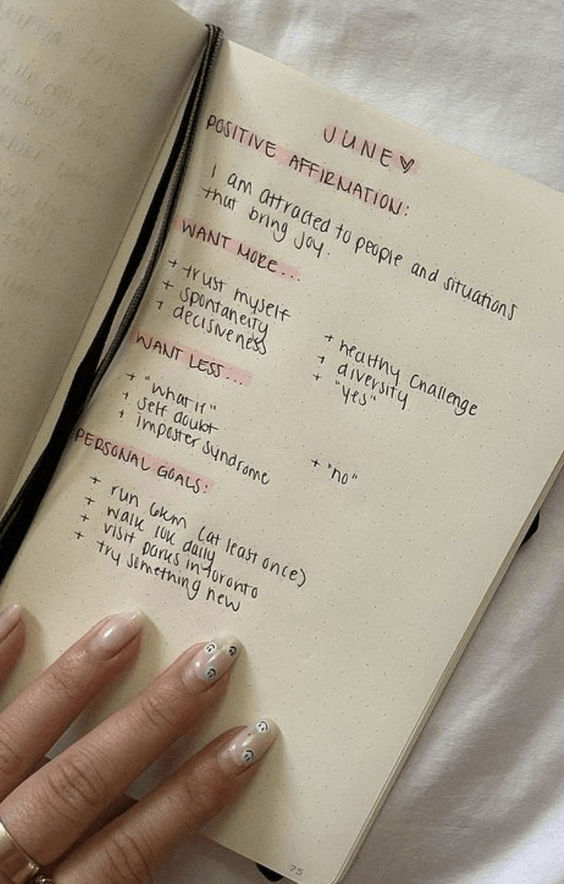 JUNE♡
POSITIVE AFFIRMATION:
I am attracted to people and situations
that bring joy.
WANT MORE...
+ trust myself
+ spontaneity
+ decisiveness
+ healthy challenge
+ diversity
+ "yes"
WANT LESS...
+ "what if"
+ self doubt
+ imposter syndrome
+ "no"
PERSONAL GOALS:
+ run 6km (at least once)
+ walk 10K daily
+ visit parks in toronto
+ try something new
75